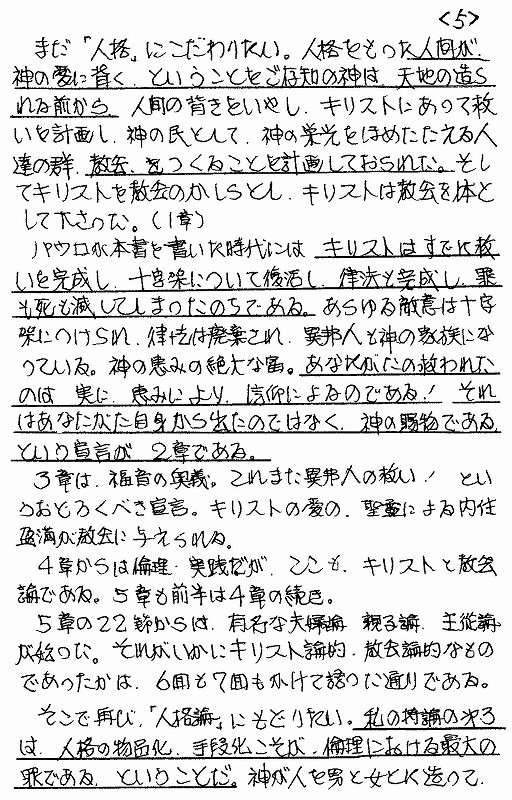 <5>
まだ「人格」にこだわりたい。人格をもった人間が、
神の愛に背く、ということをご存知の神は、天地の造ら
れる前から、人間の背きをいやし、キリストにあって救
いを計画し、神の民として、神の栄光をほめたたえる人
達の群、教会、をつくることを計画しておられた。そし
てキリストを教会のかしらとし、キリストは教会を体と
して下さった。(1章)
パウロが本書を書いた時代には、キリストはすでに救
いを完成し、十字架について復活し、律法も完成し、罪
も死も滅してしまったのちである。あらゆる敵意は十字
架につけられ、律法は廃棄され、異邦人も神の家族にな
っている。神の恵みの絶大な富。あなたがたの救われた
のは、実に、恵みにより、信仰によるのである!それ
はあなたがた自身から出たのではなく、神の賜物である、
という宣言が、2章である。
3章は、福音の奥義。これまた異邦人の救い!とい
うおどろくべき宣言。キリストの愛の、聖霊による内住
盈満が教会に与えられる。
4章からは倫理・実践だが、ここも、キリストと教会
論である。5章も前半は4章の続き。
5章の22節からは、有名な夫婦論、親子論、主従論
が始った。それがいかにキリスト論的、教会論的なもの
であったかは、6回も7回もかけて語った通りである。
そこで再び、「人格論」にもどりたい。私の持論の一つ
は、人格の物品化、手段化こそが、倫理における最大の
罪である、ということだ。神が人を男と女とに造って、